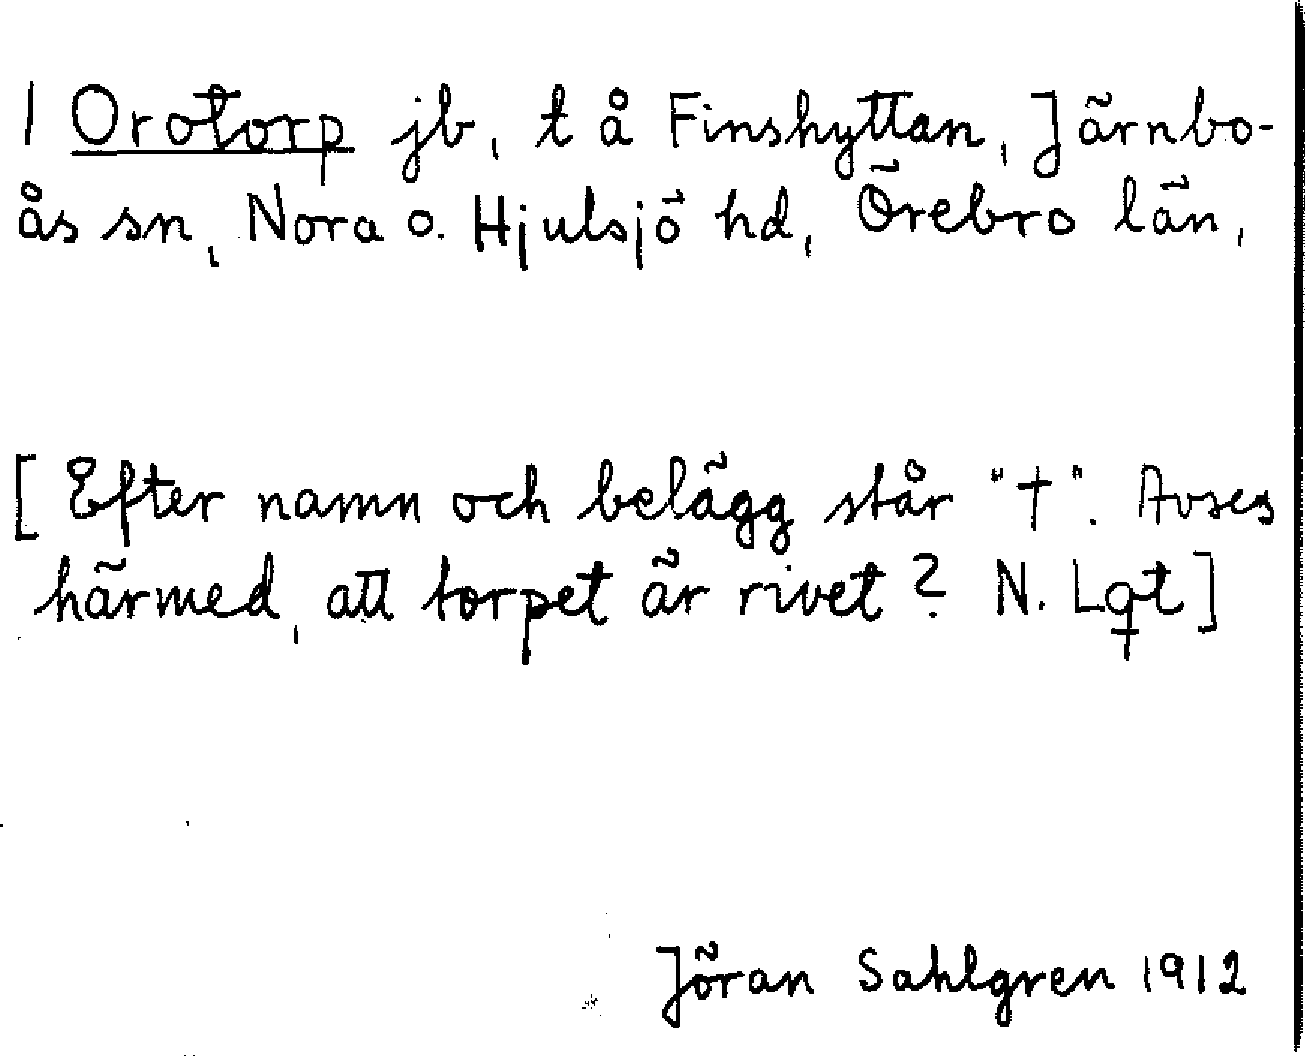 1 Orotorp jb, t å Finshyttan, Järnbo-
ås sn, Nora o. Hjulsjö hd, Örebro län,
[Efter namn och belägg står "†". Avses
härmed, att torpet är rivet? N. Lqt]
Jöran Sahlgren 1912